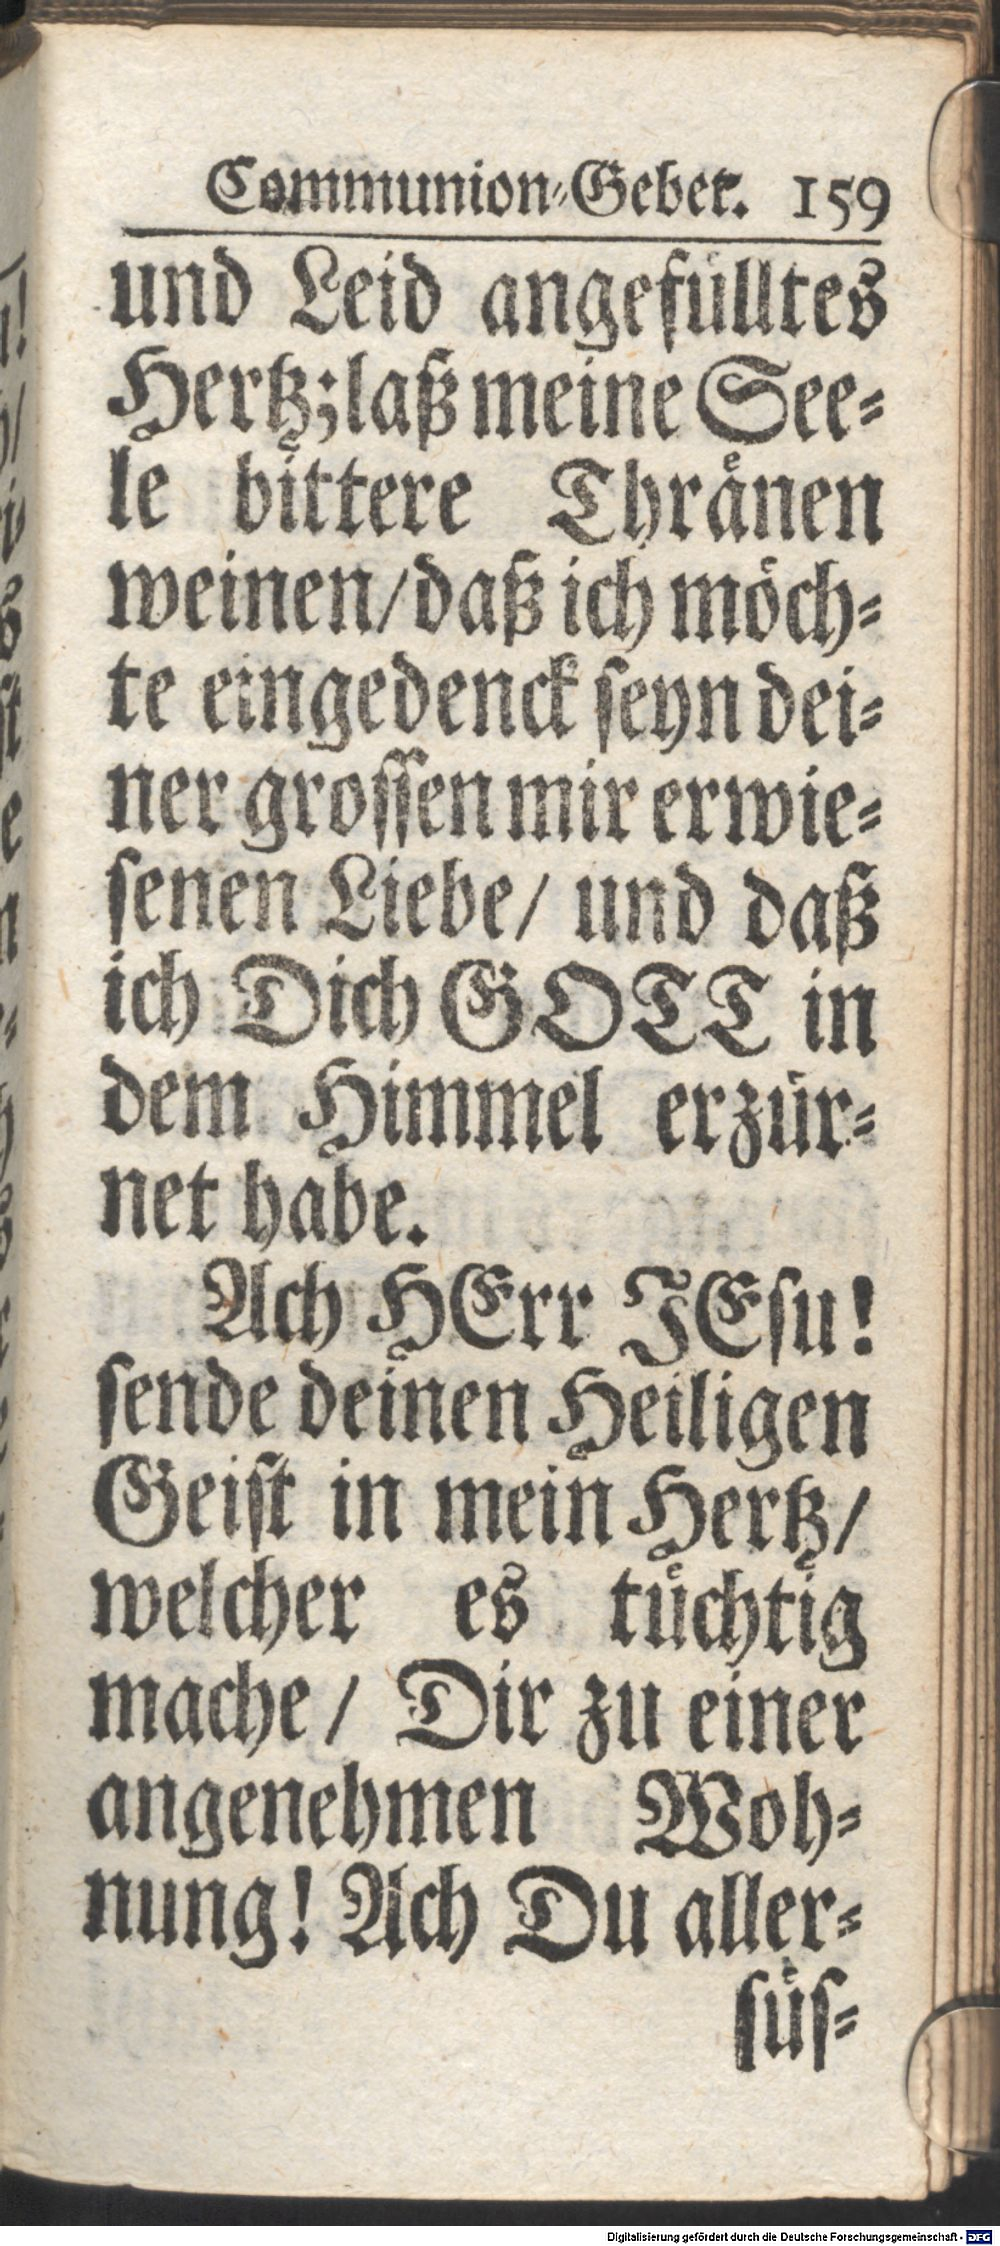 Communion-Gebet. 159
und Leid angefülltes
Hertz; laß meine See-
le bittere Thränen
weinen/ daß ich möch-
te eingedenck seyn dei-
ner grossen mir erwie-
senen Liebe/ und daß
ich Dich GOTT in
dem Himmel erzür-
net habe.
Ach HErr JEsu!
sende deinen Heiligen
Geist in mein Hertz/
welcher es tüchtig
mache/ Dir zu einer
angenehmen Woh-
nung! Ach Du aller-
süs-
Digitalisierung gefördert durch die Deutsche Forschungsgemeinschaft - DFG